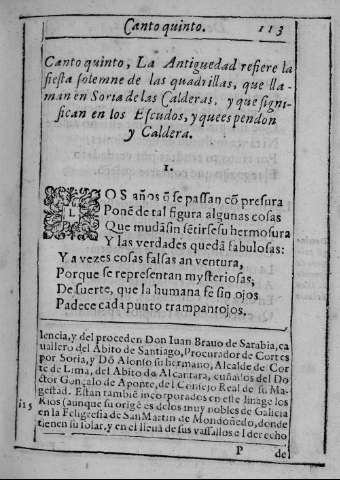 Canto quinto. 113
Canto quinto, La Antiguedad refiere la
fiesta solemne de las quadrillas, que lla-
man en Soria de las Calderas, y que signi-
fican en los Escudos, y que es pendon
y Caldera.
1.
LOS años q̃ se passan cõ presura
Ponẽ de tal figura algunas cosas
Que mudãsin sẽtirse su hermosura
Y las verdades quedã fabulosas:
Y a vezes cosas falsas an ventura,
Porque se representan mysteriosas,
De suerte, que la humana fè sin ojos
Padece cada punto trampantojos.
lencia, y del proceden Don Iuan Brauo de Sarabia, ca
uallero del Abito de Santiago, Procurador de Cortes
por Soria, y Dõ Alonso su hermano, Alcalde de Cor
te de Lima, del Abito de Alcantara, cuñados del Do
ctor Gonçalo de Aponte, del Consejo Real de su Ma-
gestad. Estan tambiẽ incorporados en este linage los
115 Rios (aunque su origẽ es de los muy nobles de Galicia
en la Feligresia de San Martin de Mondoñedo, donde
tienen su solar, y en el lleuã de sus vassallos el derecho
P de